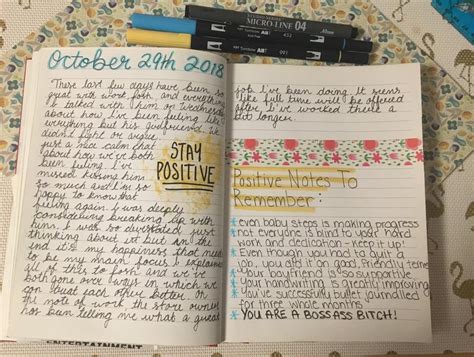 MICRO-LINE 04
October 29th 2018
These last few days have been so
great with work, Josh and everything
I talked with him on Wednesday
about how I've been feeling like
everything but his girlfriend. We
didn't fight or argue,
just a nice calm chat
about how we've both
been feeling. I've
missed kissing him
so much and I'm so
happy to know that
feeling again. I was deeply
considering breaking up with
him. I was so devastated just
thinking about it but in the
end it's my happiness that need
to be my main focus. I explained
all of this to Josh and we've
both gone over ways in which we
can treat each other better. On
the note of work the store owner
has been telling me what a great
STAY
POSITIVE
job I've been doing. It seems
like full time will be offered
after I've worked there a
bit longer.
Positive Notes To
Remember:
* even baby steps is making progress
* not everyone is blind to your hard
work and dedication - keep it up!
* Even though you had to quit a
job, you left it on good, friendly terms
* Your boyfriend is so supportive
* Your handwriting is greatly improving
* You've successfully bullet journalled
for three whole months
* YOU ARE A BOSSASS BITCH!
ENTERTAINMENT